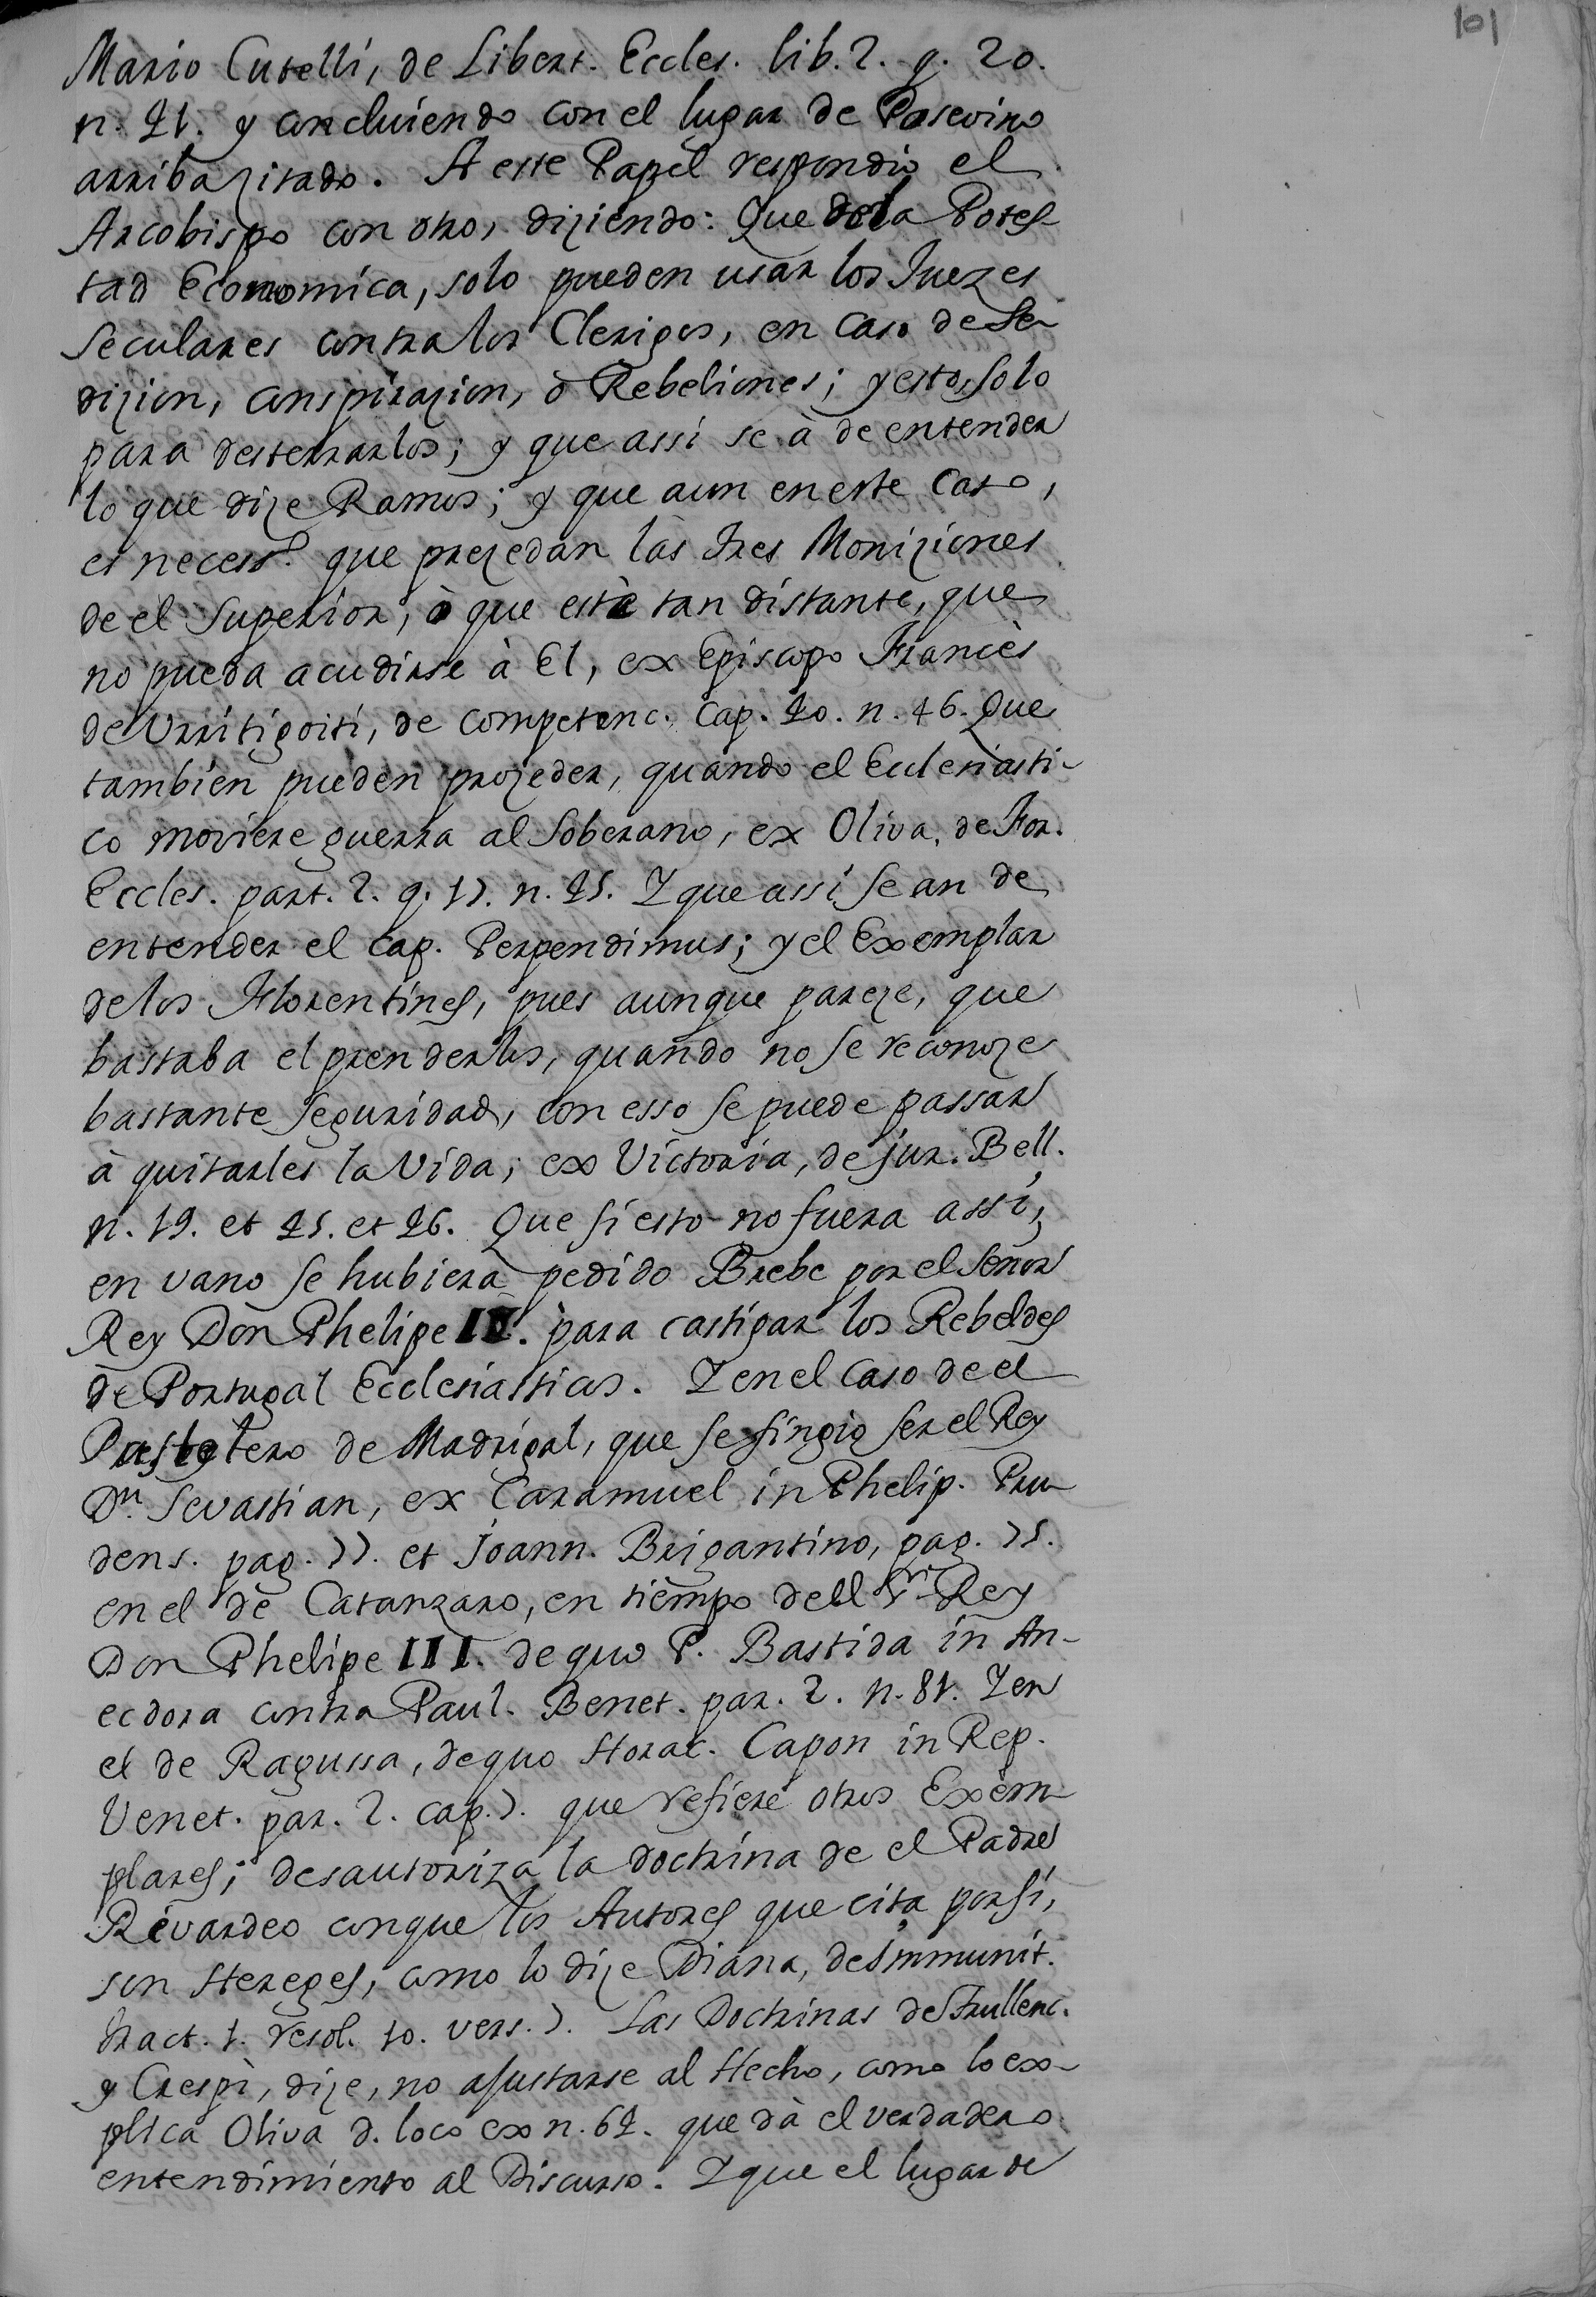 101
Mario Cutelli, de Libert. Eccles. lib. 2. q. 20.
n. 21. y concluiendo con el lugar de Posevino
arriba zitado. A este Papel respondio el
Arcobispo con otro, diziendo: Que de la Potes-
tad Economica, solo pueden usar los Juezes
Seculares contra los Clerigos, en caso de Se-
dizion, conspirazion, ò Rebeliones; y esto, solo
para desterrarlos; y que assi se à de entender
lo que dize Ramos; y que aun en este caso,
es necessº. que prezedan las tres Moniziones
de el Superior, ò que estè tan distante, que
no pueda acudirse à El, ex Episcopo Francès
de Urritigoiti, de competenc. Cap. 20. n. 46. Que
tambien pueden prozeder, quando el Eclesiasti-
co moviere guerra al Soberano, ex Oliva, de For.
Eccles. part. 2. q. 17. n. 25. Y que assi se an de
entender el cap. Perpendimus; y el Exemplar
de los Florentines, pues aunque pareze, que
bastaba el prenderlos, quando no se reconoze
bastante seguridad, con esso se puede passar
à quitarles la Vida; ex Victoria, de jur. Bell.
n. 19. et 25. et 26. Que si esto no fuera assi,
en vano se hubiera pedido Brebe por el Señor
Rey Don Phelipe IV. para castigar los Rebeldes
de Portugal Ecclesiasticos. Y en el caso de el
Pastelero de Madrigal, que se fingio ser el Rey
Dn. Sevastian, ex Caramuel in Phelip. Pru-
dens. pag. 77. et Joann. Brigantino, pag. 75.
en el de Catanzaro, en tiempo del Sr. Rey
Don Phelipe III. de quo P. Bastida in An-
ecdora contra Paul. Benet. par. 2. n. 81. Y en
el de Ragussa, de quo Horac. Capon in Rep.
Venet. par. 2. cap. 7. que refiere otros Exem-
plares; desautoriza la doctrina de el Padre
Rivardeo con que los Autores que cita por si,
son Hereges, como lo dize Diana, de Immunit.
tract. 1. resol. 10. vers. 7. Las Doctrinas de Trullenc.
y Crespì, dize, no ajustarse al Hecho, como lo ex-
plica Oliva d. loco ex n. 62. que dà el verdadero
entendimiento al Discurso. Y que el lugar de